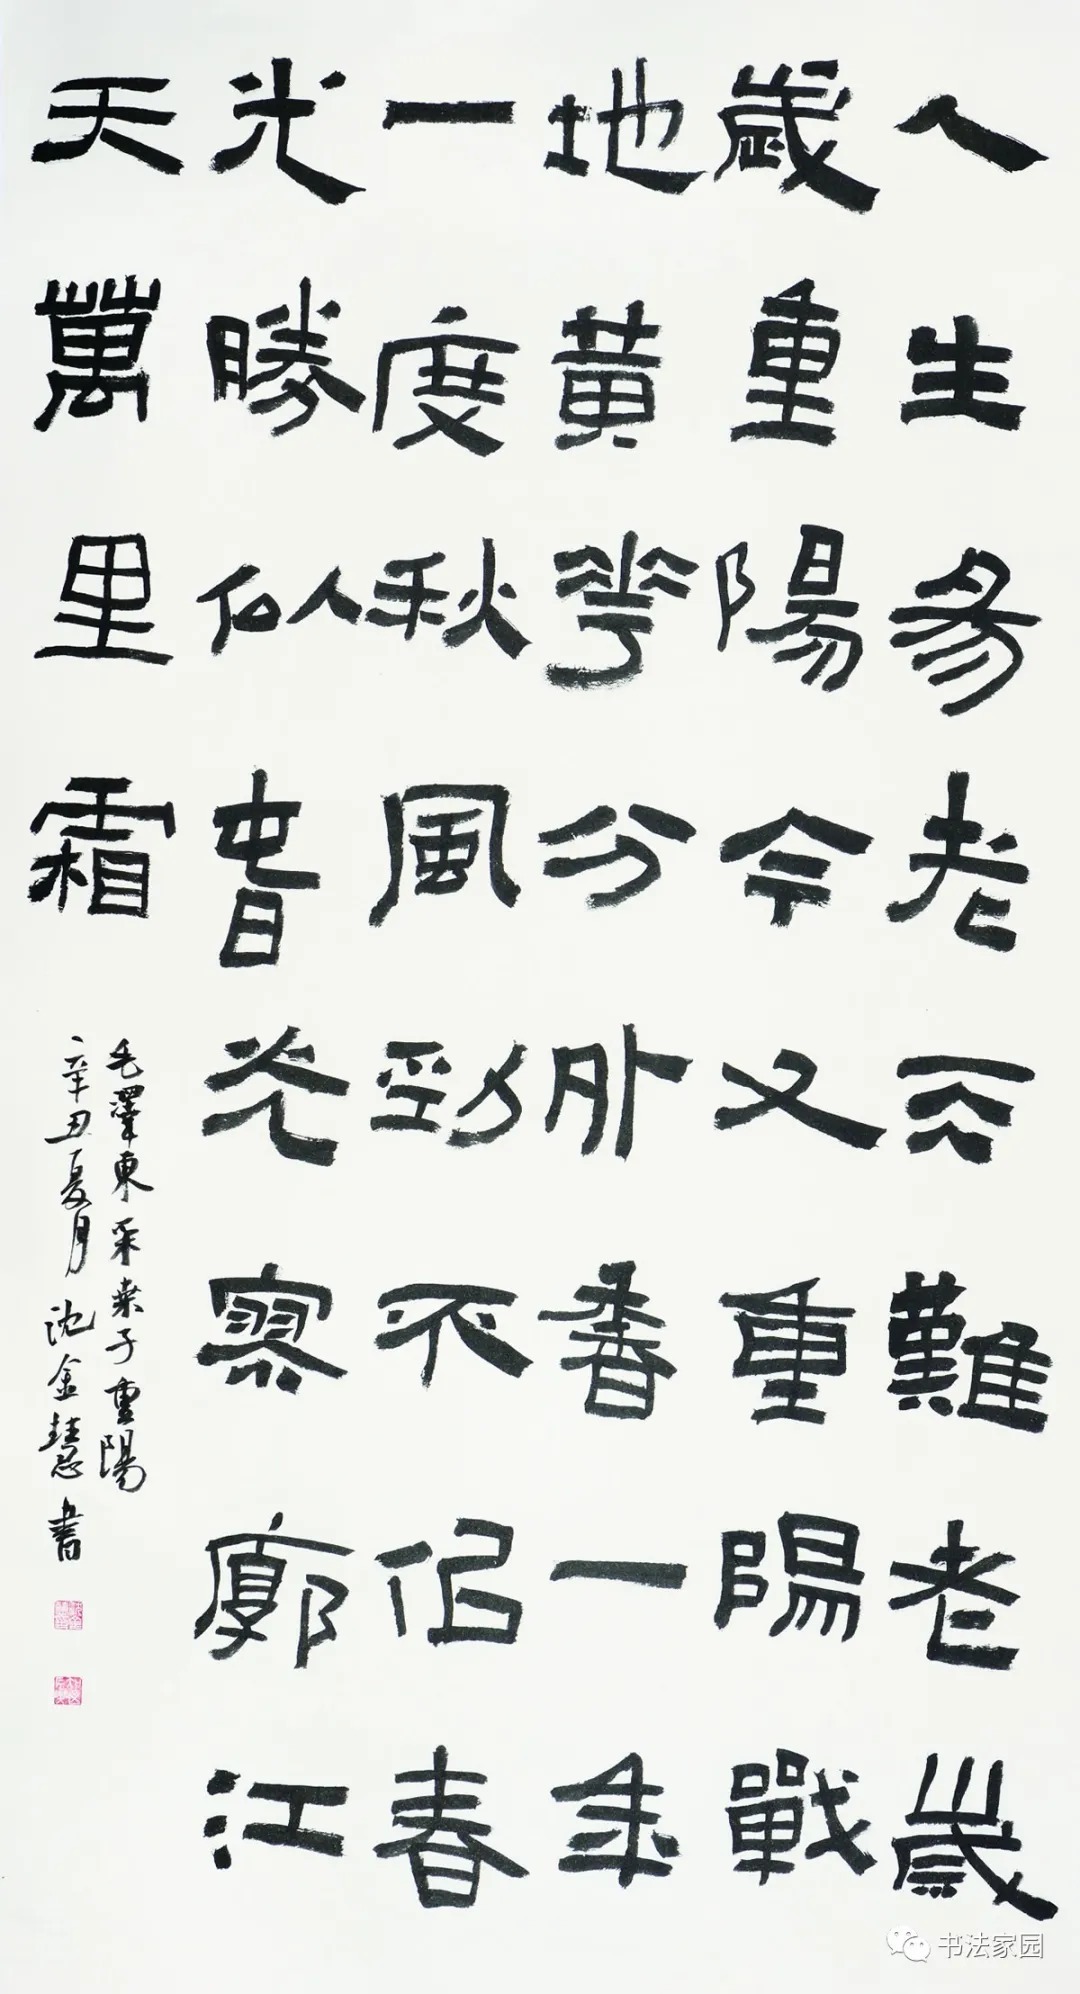 人生易老天難老歲
歲重陽今又重陽戰
地黃華分外香一年
一度秋風勁不似春
光勝似春光寥廓江
天萬里霜
毛澤東采桑子重陽
辛丑夏月沈金慧書
书法家园